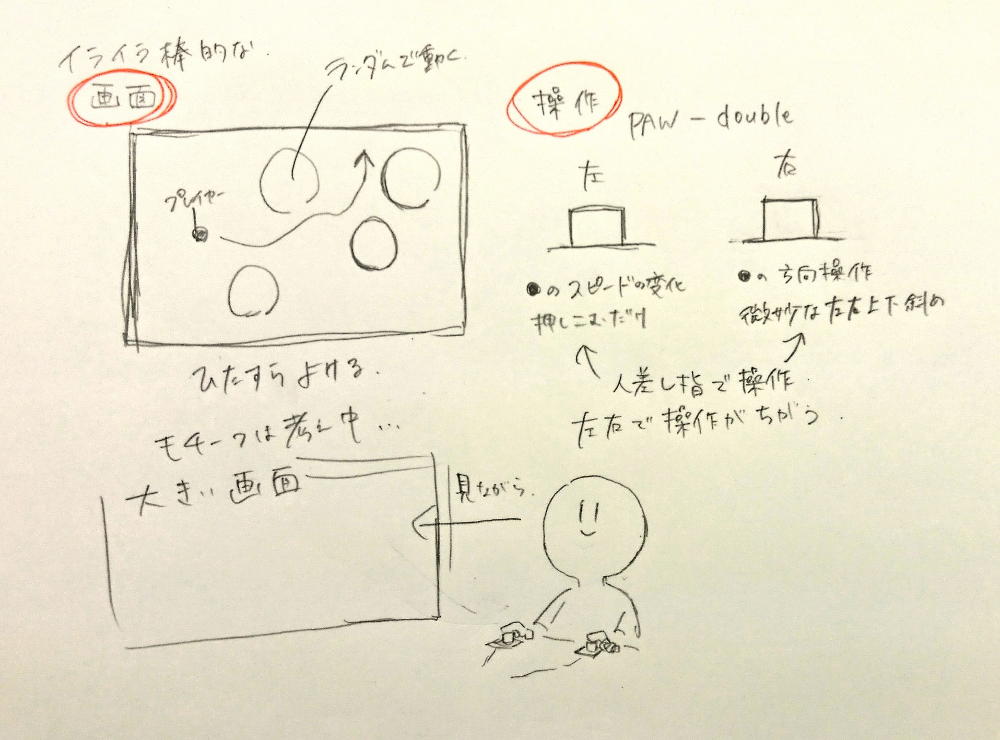 イライラ棒的な.
画面
ランダムで動く.
プレイヤー
ひたすらよける.
モチーフは考え中...
操作
PAW-double
左
右
●のスピードの変化
押しこむだけ
●の方向操作
微妙な左右上下斜め
人差し指で操作.
左右で操作がちがう.
大きい画面
見ながら.